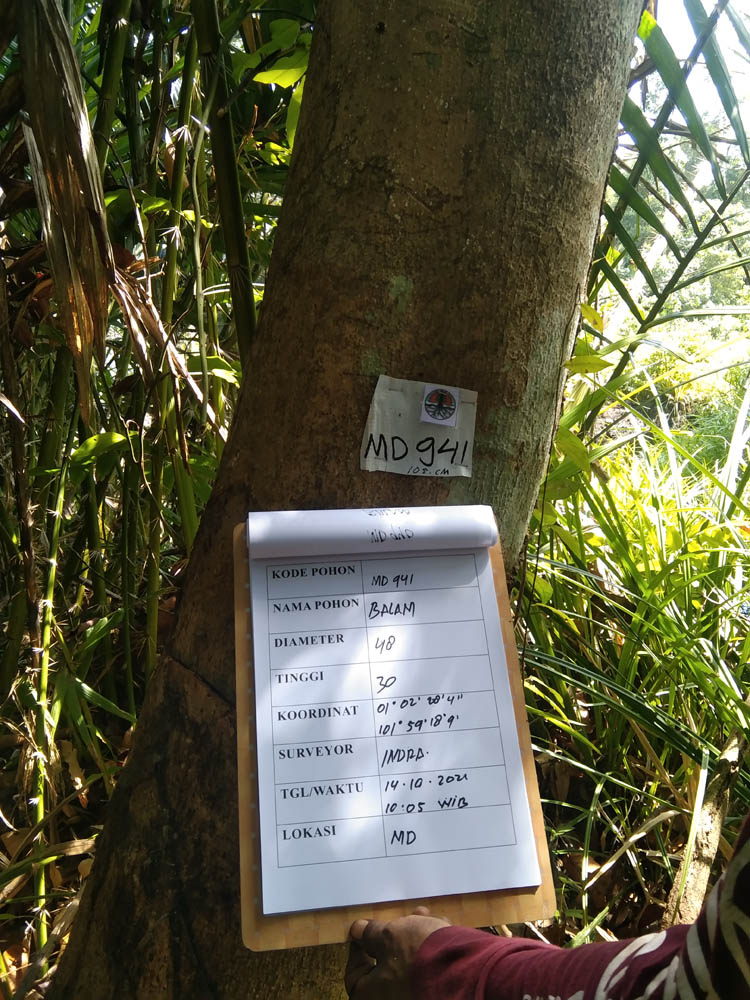 MD 941
105.CM
KODE POHON MD 941
NAMA POHON BALAM
DIAMETER 48
TINGGI 30
KOORDINAT 01° 02' 28'4"
101° 59' 18'9'
SURVEYOR INDRA.
TGL/WAKTU 14.10.2021
10:05 WIB
LOKASI MD